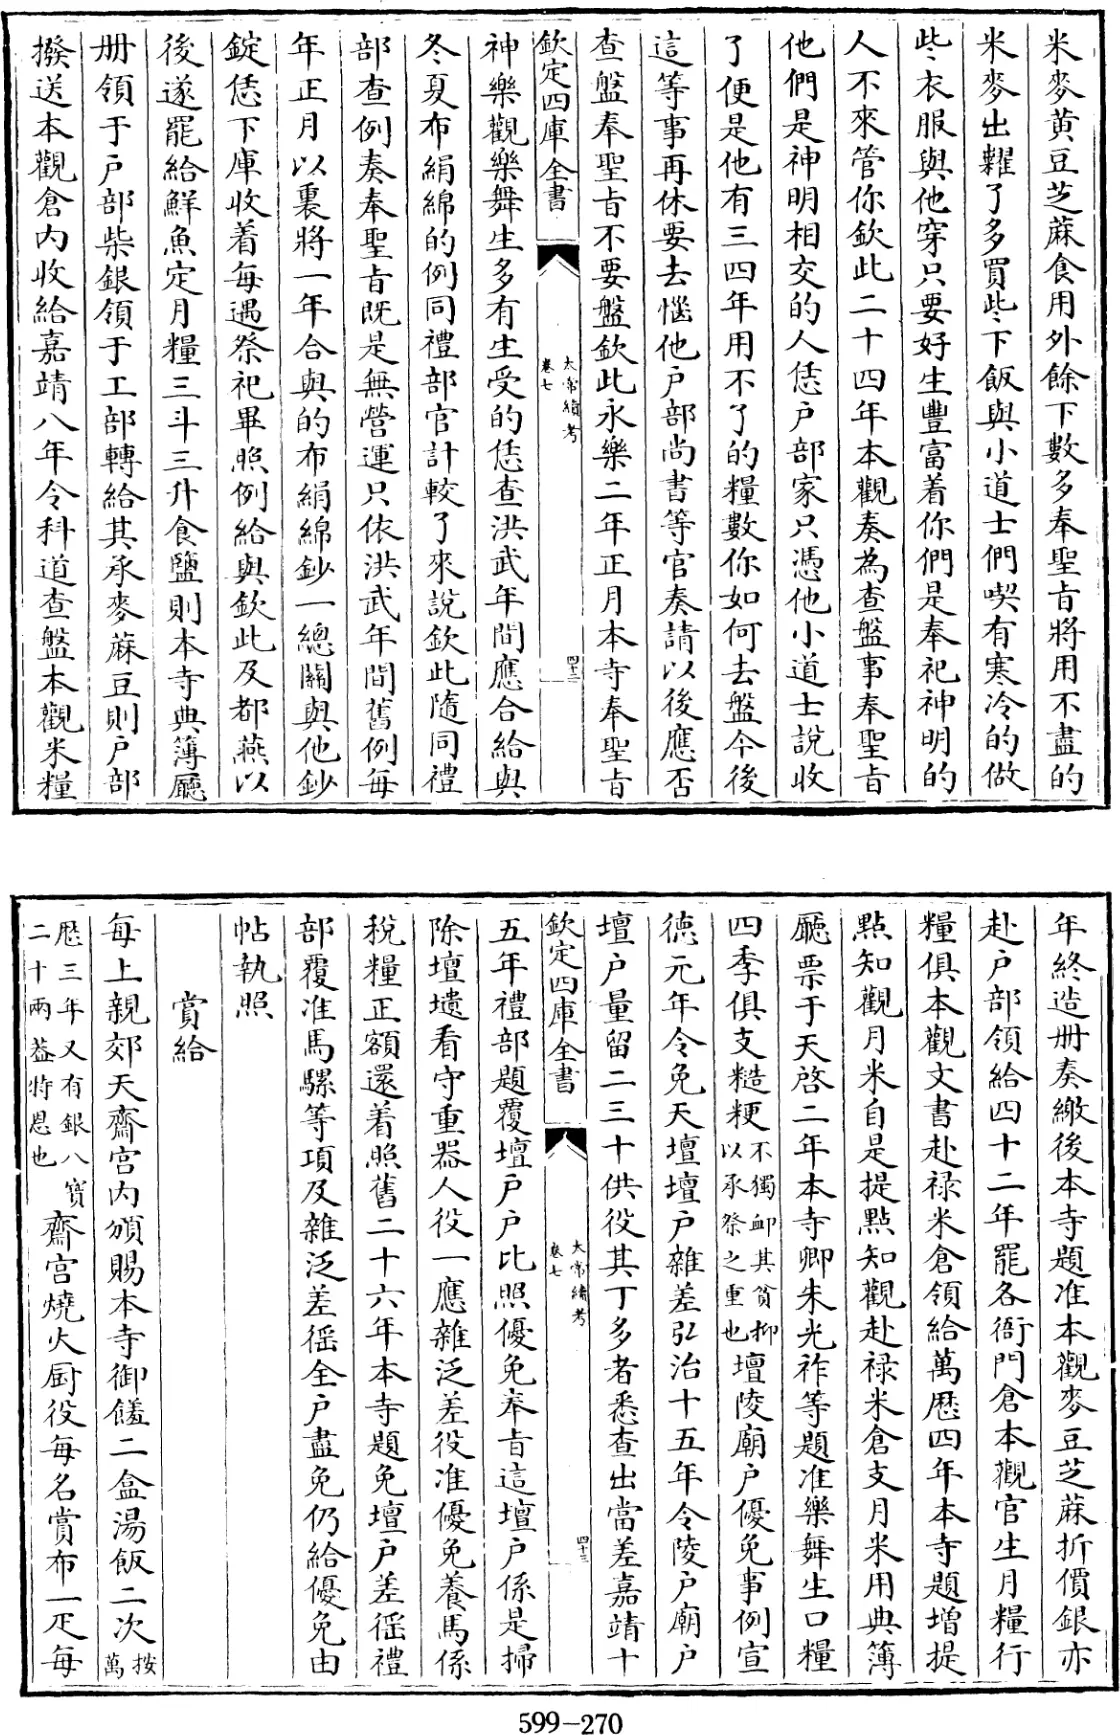 米麥黄豆芝蔴食用外餘下數多奉聖旨將用不盡的
米麥出糶了多買些下飯與小道士們喫有寒冷的做
些衣服與他穿只要好生豐富着你們是奉祀神明的
人不來管你欽此二十四年本觀奏為查盤事奉聖旨
他們是神明相交的人恁户部家只憑他小道士說收
了便是他有三四年用不了的糧數你如何去盤今後
這等事再休要去惱他户部尚書等官奏請以後應否
查盤奉聖旨不要盤欽此永樂二年正月本寺奉聖旨
欽定四庫全書
太常續考
卷七
四十二
神樂觀樂舞生多有生受的恁查洪武年間應合給與
冬夏布絹綿的例同禮部官計較了來說欽此隨同禮
部查例奏奉聖旨既是無營運只依洪武年間舊例每
年正月以裏將一年合與的布絹綿鈔一總關與他鈔
錠恁下庫收着每遇祭祀畢照例給與欽此及都燕以
後遂罷給鮮魚定月糧三斗三升食鹽則本寺典簿廳
册領于户部柴銀領于工部轉給其承麥蔴豆則户部
撥送本觀倉内收給嘉靖八年令科道查盤本觀米糧
年終造册奏繳後本寺題准本觀麥豆芝蔴折價銀亦
赴户部領給四十二年罷各衙門倉本觀官生月糧行
糧俱本觀文書赴禄米倉領給萬厯四年本寺題增提
點知觀月米自是提點知觀赴禄米倉支月米用典簿
廳票于天啓二年本寺卿朱光祚等題准樂舞生口糧
四季俱支糙粳不獨卹其貧抑
以承祭之重也壇陵廟户優免事例宣
德元年令免天壇壇户雜差弘治十五年令陵户廟户
壇户量留二三十供役其丁多者悉查出當差嘉靖十
欽定四庫全書
太常續考
卷七
四十三
五年禮部題覆壇户户比照優免奉旨這壇户係是掃
除壇壝看守重器人役一應雜泛差役准優免養馬係
税糧正額還着照舊二十六年本寺題免壇户差徭禮
部覆准馬騾等項及雜泛差徭全户盡免仍給優免由
帖執照
賞給
每上親郊天齋宮内頒賜本寺御饈二盒湯飯二次按萬
厯三年又有銀八寶
二十兩葢特恩也齋宮燒火厨役每名賞布一疋每
599-270